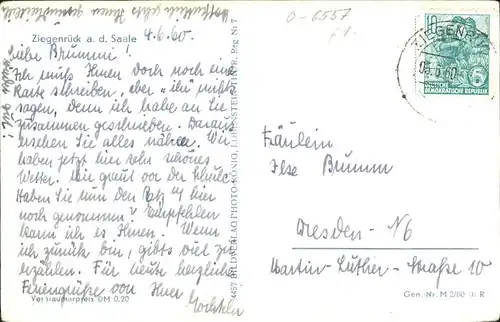 Hoffentlich gehts Ihnen gesundheitlich
wieder gut!
O-6557
Ziegenrück a. d. Saale
4.6.60.
Liebe Brummi!
Ich muß Ihnen doch noch eine
Karte schreiben, aber "ihr" nichts
sagen, denn ich habe an Sie
zusammen geschrieben. Daraus
ersehen Sie alles nähere. Wir
haben jetzt hier sehr schönes
Wetter. Mir graut vor der Schule.
Haben Sie nun den Platz hier
noch genommen? Empfehlen
kann ich es Ihnen. Wenn
ich zurück bin, gibts viel zu
erzählen. Für heute herzliche
Feriengrüße von Ihrer
Verbraucherpreis DM 0,20
4457 BILD-VERLAG PHOTO-KÖNIG, LOBENSTEIN Reg Nr 7
ZIEGENRÜCK
60
10
5
DEUTSCHE
DEMOKRATISCHE REPUBLIK
Fräulein
Ilse Brumm
Dresden - N6
Martin-Luther-Straße 10
Gen.-Nr. M 2/60 R